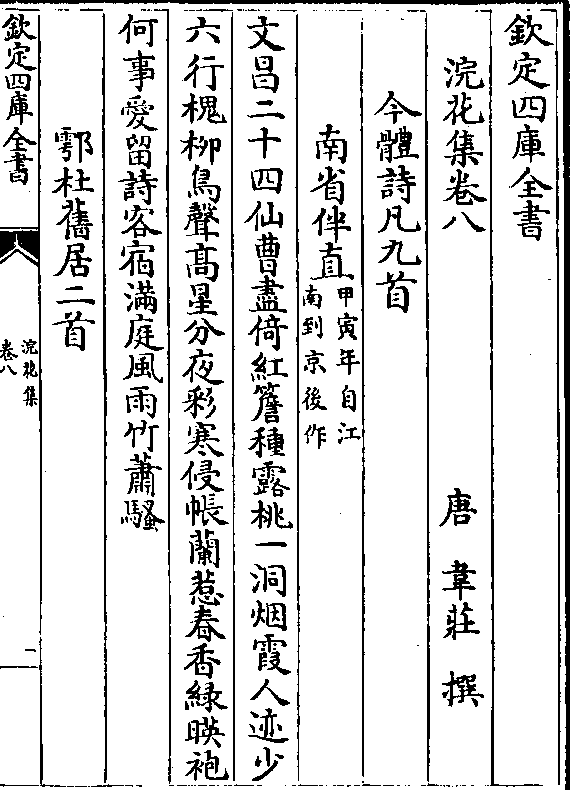 欽定四庫全書
浣花集卷八
唐 韋莊 撰
今體詩凡九首
南省伴直甲寅年自江
南到京後作
文昌二十四仙曹盡倚紅簷種露桃一洞烟霞人迹少
六行槐柳鳥聲髙星分夜彩寒侵帳蘭惹春香緑暎袍
何事愛留詩客宿滿庭風雨竹蕭騷
鄠杜舊居二首
欽定四庫全書
浣花集
卷八
一